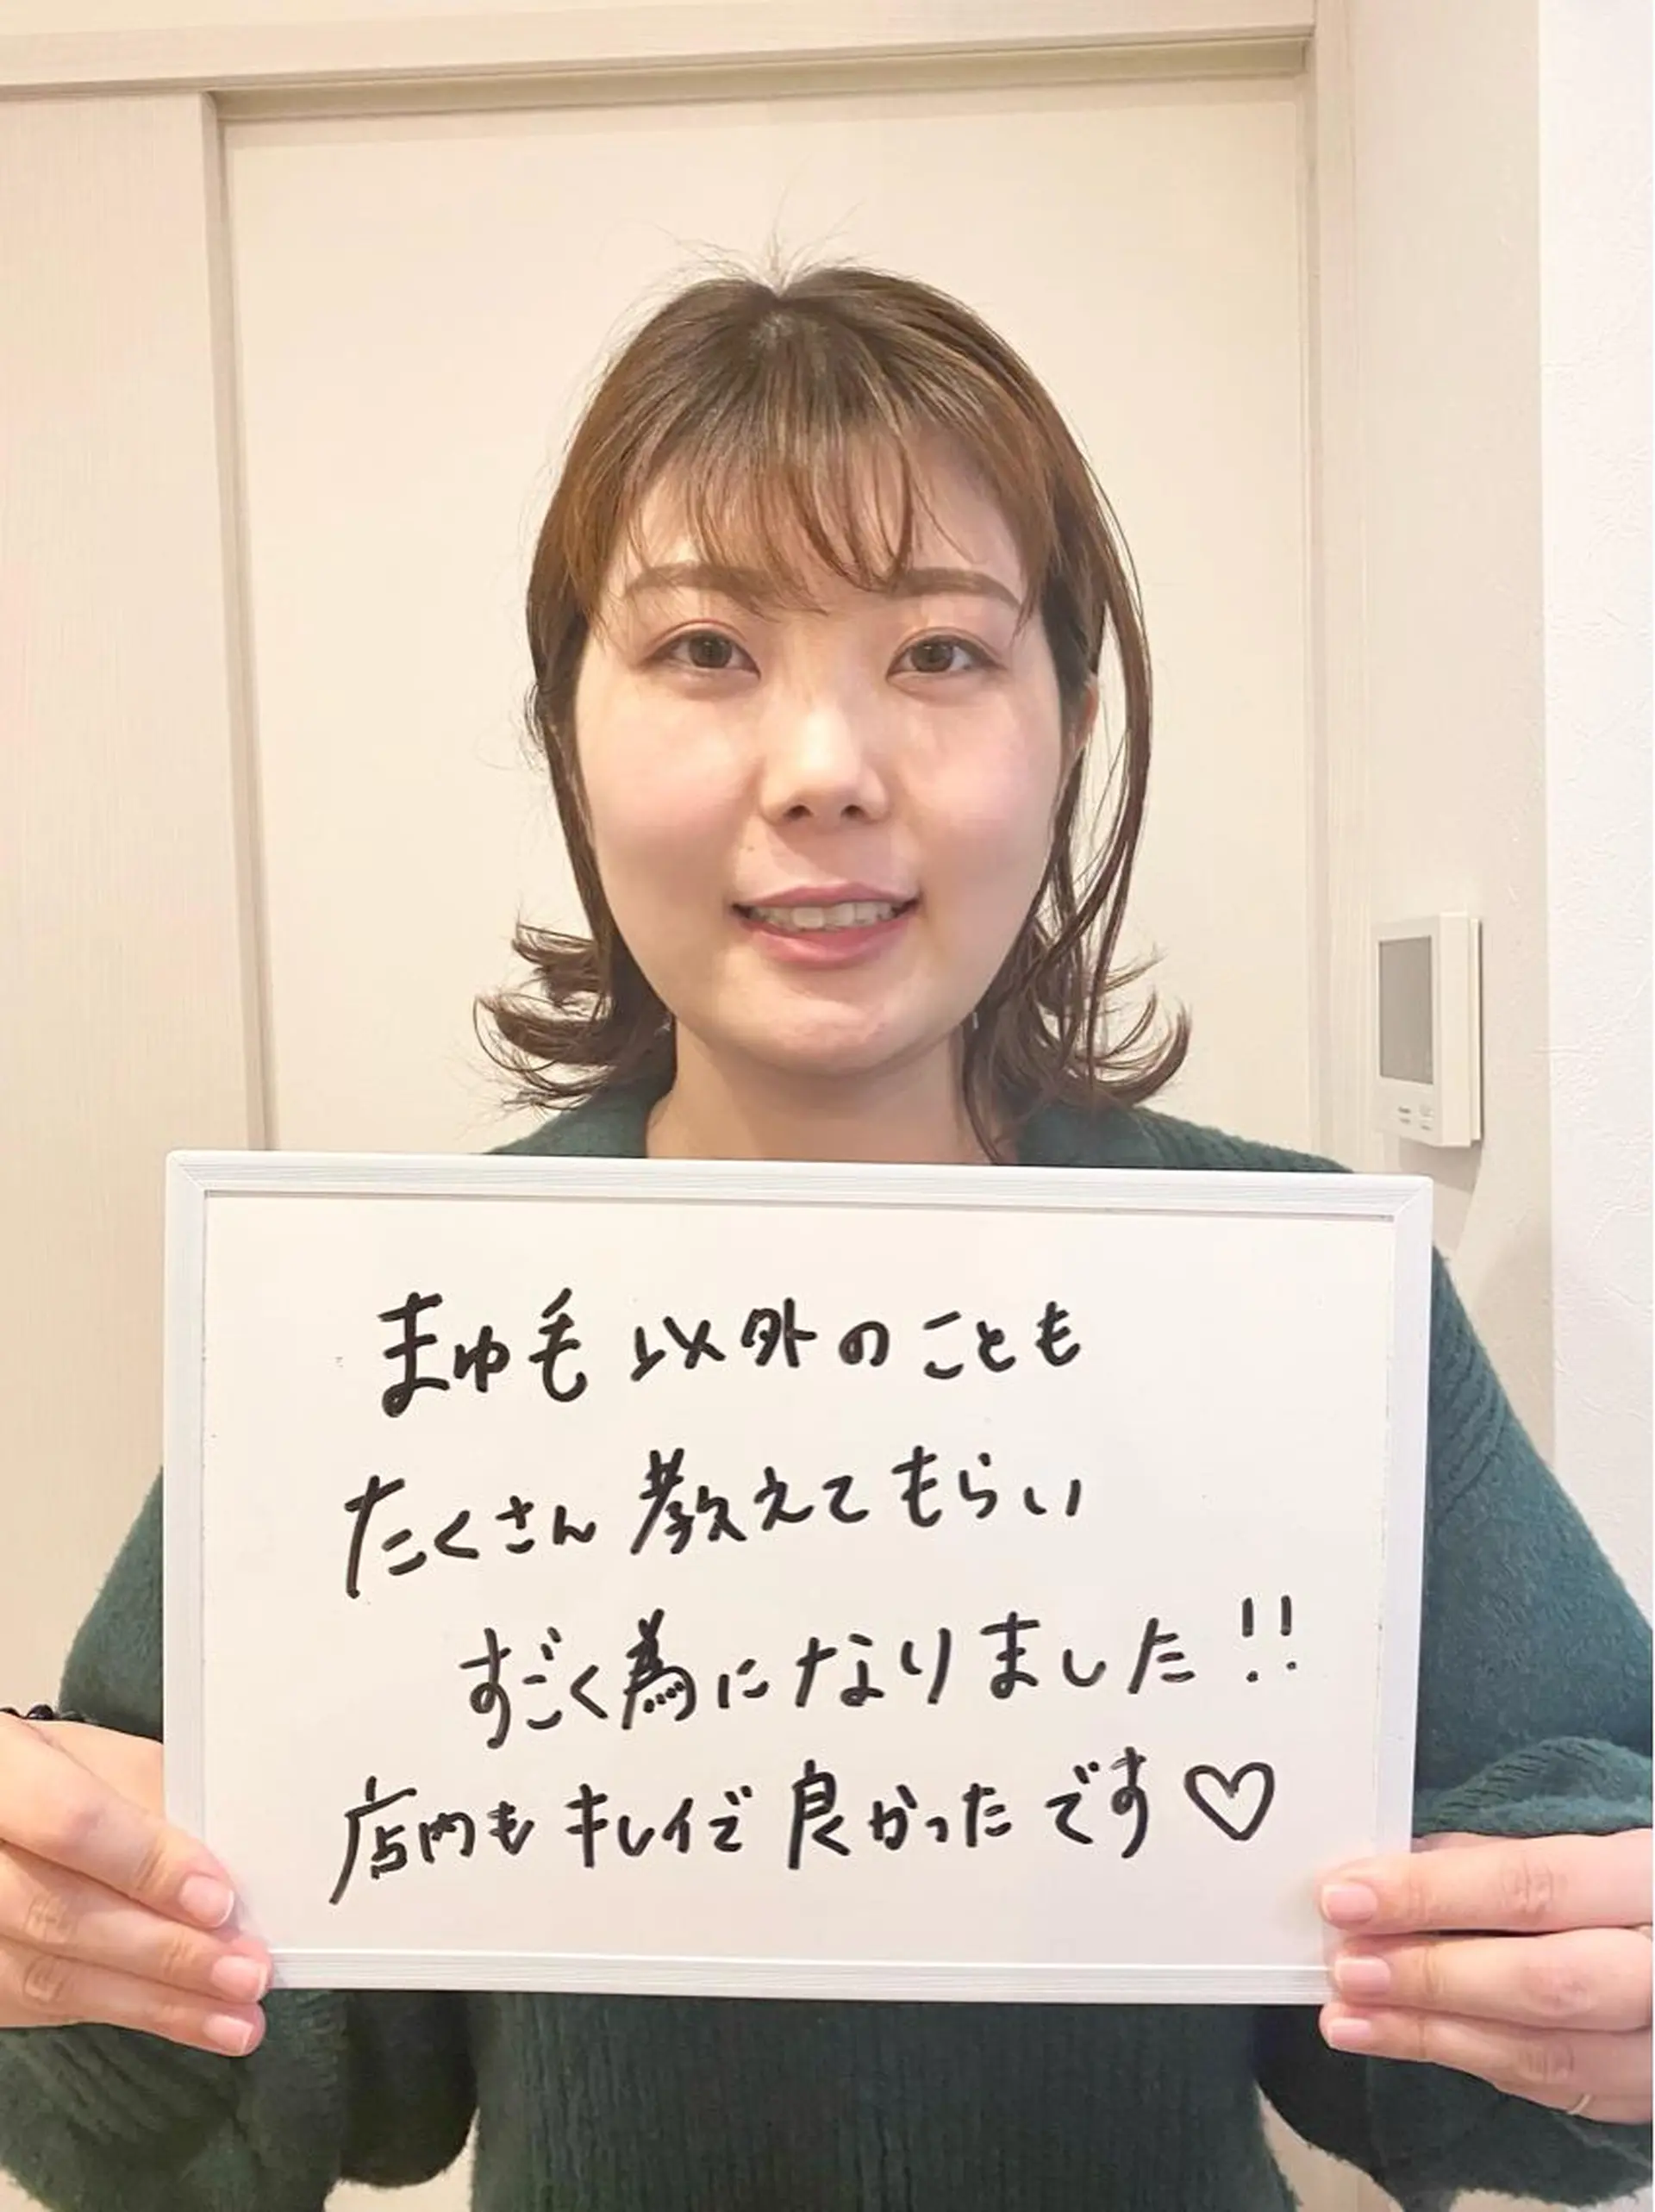 まゆ毛以外のことも
たくさん教えてもらい
すごく為になりました!!
店内もキレイで良かったです♡